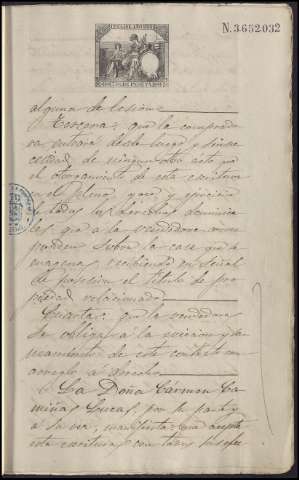 N. 3.652.032
alguna de lesion
Tercera: que la comprado-
ra entrará desde luego y sin ne-
cesidad de ningun otro acto por
el otorgamiento de esta escritura
en el pleno goce y ejercicio
de todos los derechos dominica-
les que a la vendedora corres-
ponden sobre la casa que
enagena, recibiendo en señal
de posesion el titulo de pro-
piedad relacionado
Cuarta: que la vendedora
se obliga á la eviccion y sa-
neamiento de este contrato con
arreglo á derecho
La Doña Cármen
por su parte y
a su vez, manifiesta: que acepta
esta escritura con todas sus